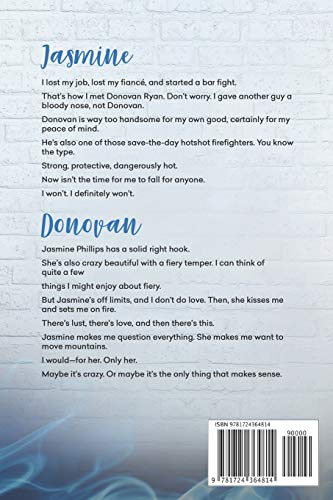 Jasmine
I lost my job, lost my fiancé, and started a bar fight.
That's how I met Donovan Ryan. Don't worry. I gave another guy a
bloody nose, not Donovan.
Donovan is way too handsome for my own good, certainly for my
peace of mind.
He's also one of those save-the-day hotshot firefighters. You know
the type.
Strong, protective, dangerously hot.
Now isn't the time for me to fall for anyone.
I won't. I definitely won't.
Donovan
Jasmine Phillips has a solid right hook.
She's also crazy beautiful with a fiery temper. I can think of
quite a few
things I might enjoy about fiery.
But Jasmine's off limits, and I don't do love. Then, she kisses me
and sets me on fire.
There's lust, there's love, and then there's this.
Jasmine makes me question everything. She makes me want to
move mountains.
I would—for her. Only her.
Maybe it's crazy. Or maybe it's the only thing that makes sense.
ISBN 9781724364814
90000
9 781724 364814